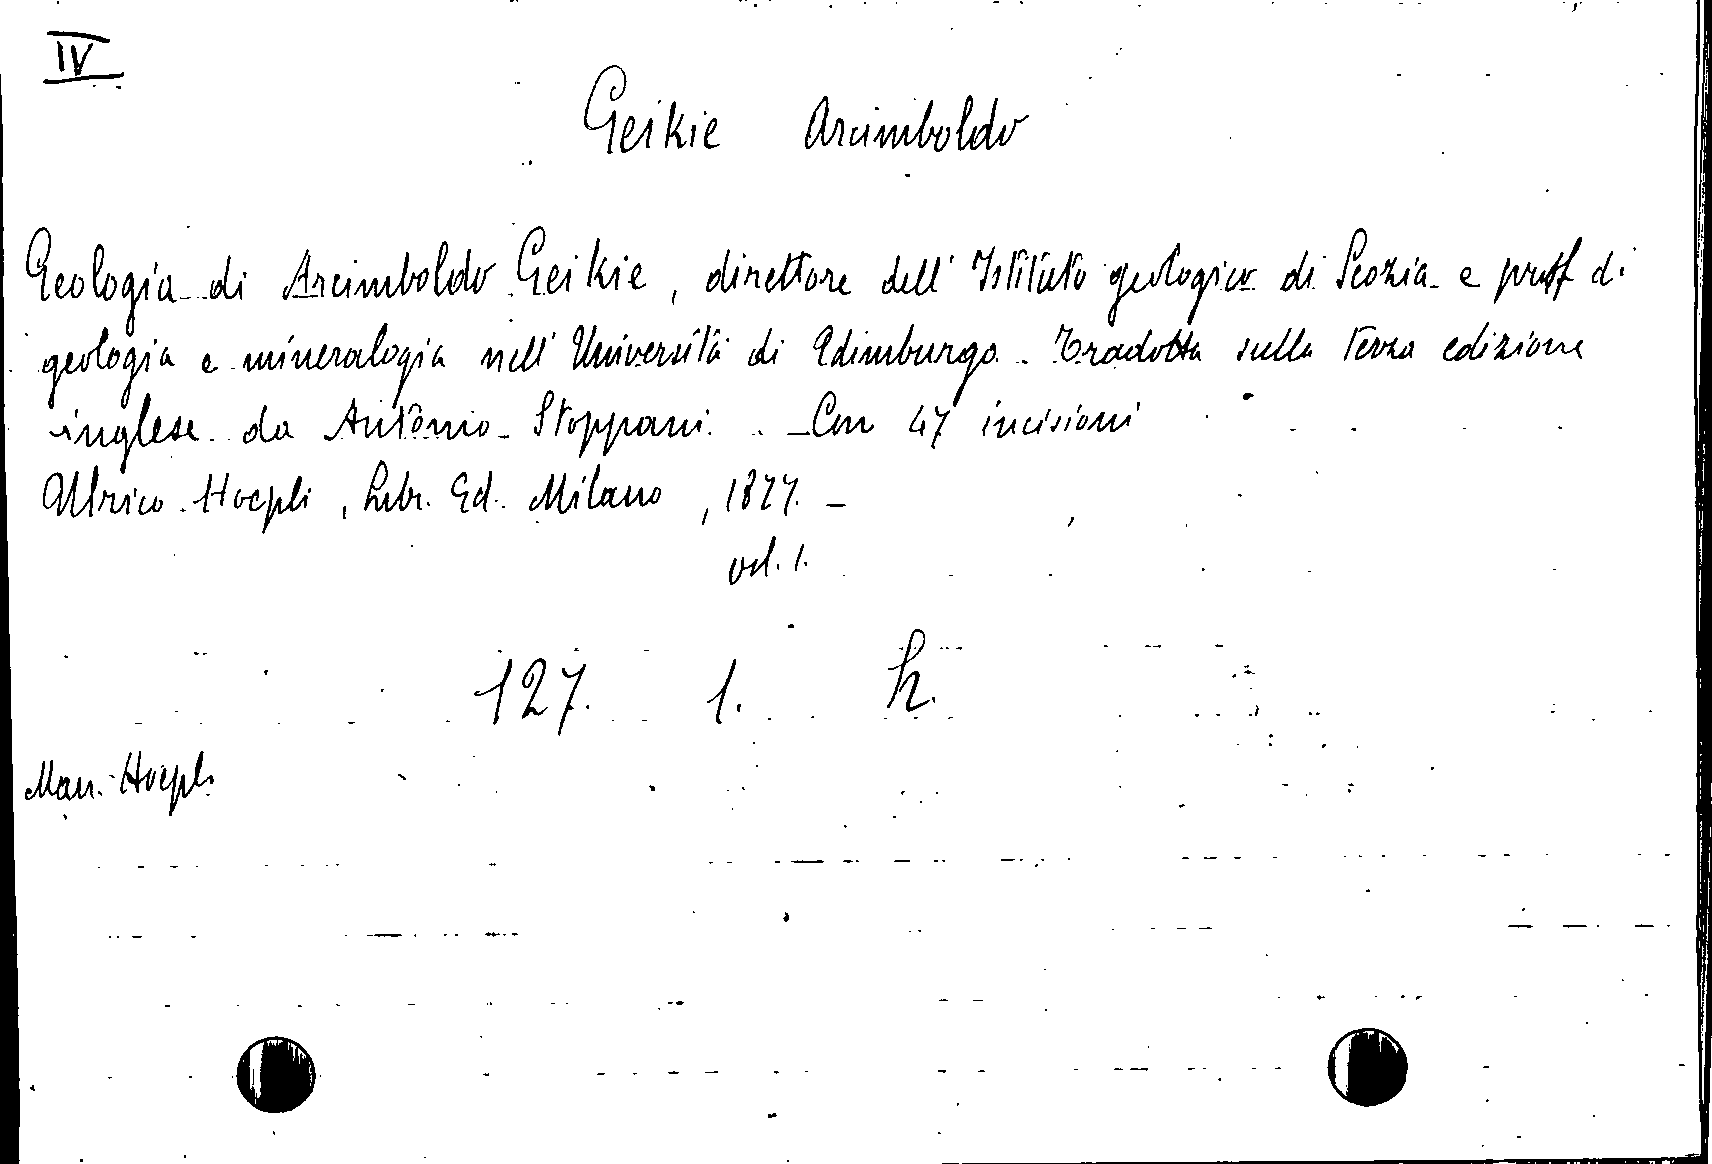 IV
Geikie Arcimboldo
Geologia di Arcimboldo Geikie, direttore dell' Istituto geologico di Scozia e prof di
geologia e mineralogia nell' Università di Edimburgo. Tradotta sulla terza edizione
inglese da Antonio Stoppani. - Con 47 incisioni
Ulrico Hoepli, Libr. Ed. Milano, 1877. -
vol. 1.
127. 1. h.
Man. Hoepli